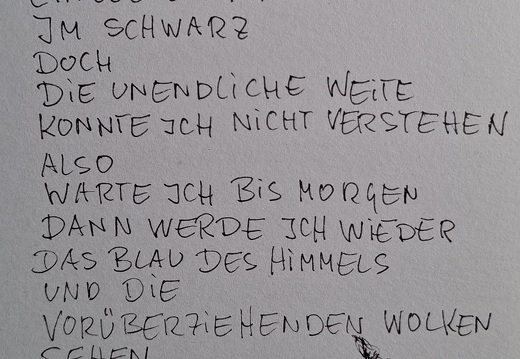 IM SCHWARZ
DOCH
DIE UNENDLICHE WEITE
KONNTE ICH NICHT VERSTEHEN
ALSO
WARTE ICH BIS MORGEN
DANN WERDE ICH WIEDER
DAS BLAU DES HIMMELS
UND DIE
VORÜBERZIEHENDEN WOLKEN
SEHEN